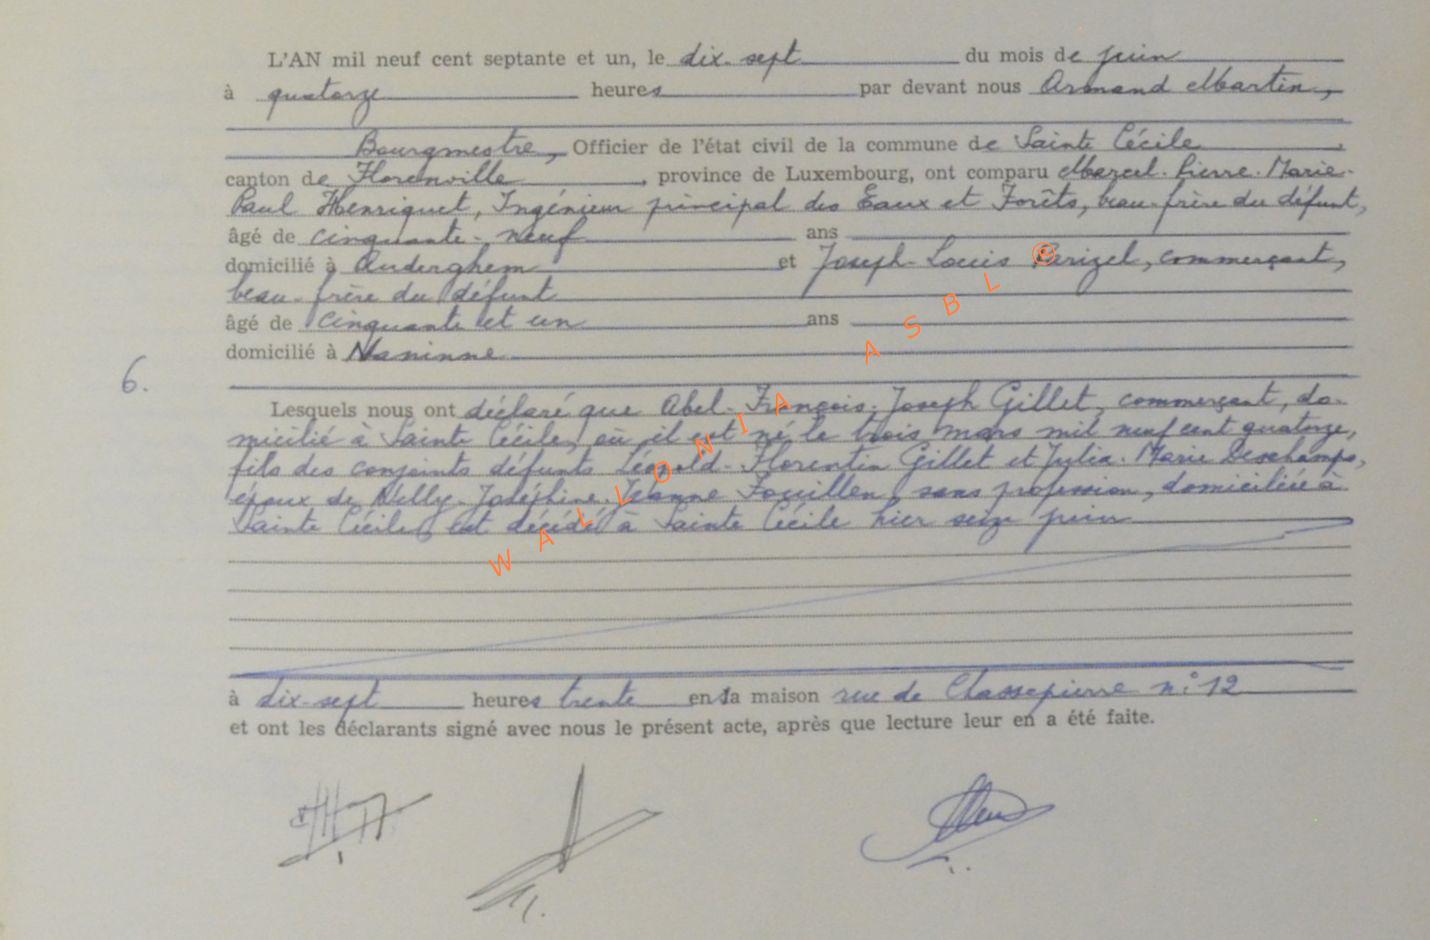 L'AN mil neuf cent septante et un, le dix-sept du mois de juin
à quatorze heures par devant nous Armand Martin,
Bourgmestre, Officier de l'état civil de la commune de Sainte Cécile
canton de Florenville, province de Luxembourg, ont comparu Marcel-Pierre-Marie-
Paul Henriquet, Ingénieur principal des Eaux et Forêts, beau-frère du défunt,
âgé de cinquante-neuf ans
domicilié à Auderghem et Joseph-Louis commerçant,
beau-frère du défunt
âgé de cinquante et un ans
domicilié à Naninne
6.
Lesquels nous ont déclaré que Abel-François-Joseph Gillet, commerçant, do-
micilié à Sainte Cécile, où il est né le trois mars mil neuf cent quatorze,
fils des conjoints défunts Léopold-Florentin Gillet et Julia-Marie Deschamps,
époux de Nelly-Joséphine-Jeanne Fouillen, sans profession, domiciliée à
Sainte Cécile, est décédé à Sainte Cécile hier seize juin
à dix-sept heures trente en la maison rue de Chassepierre n° 12
et ont les déclarants signé avec nous le présent acte, après que lecture leur en a été faite.
WALLONIA ASBL ®